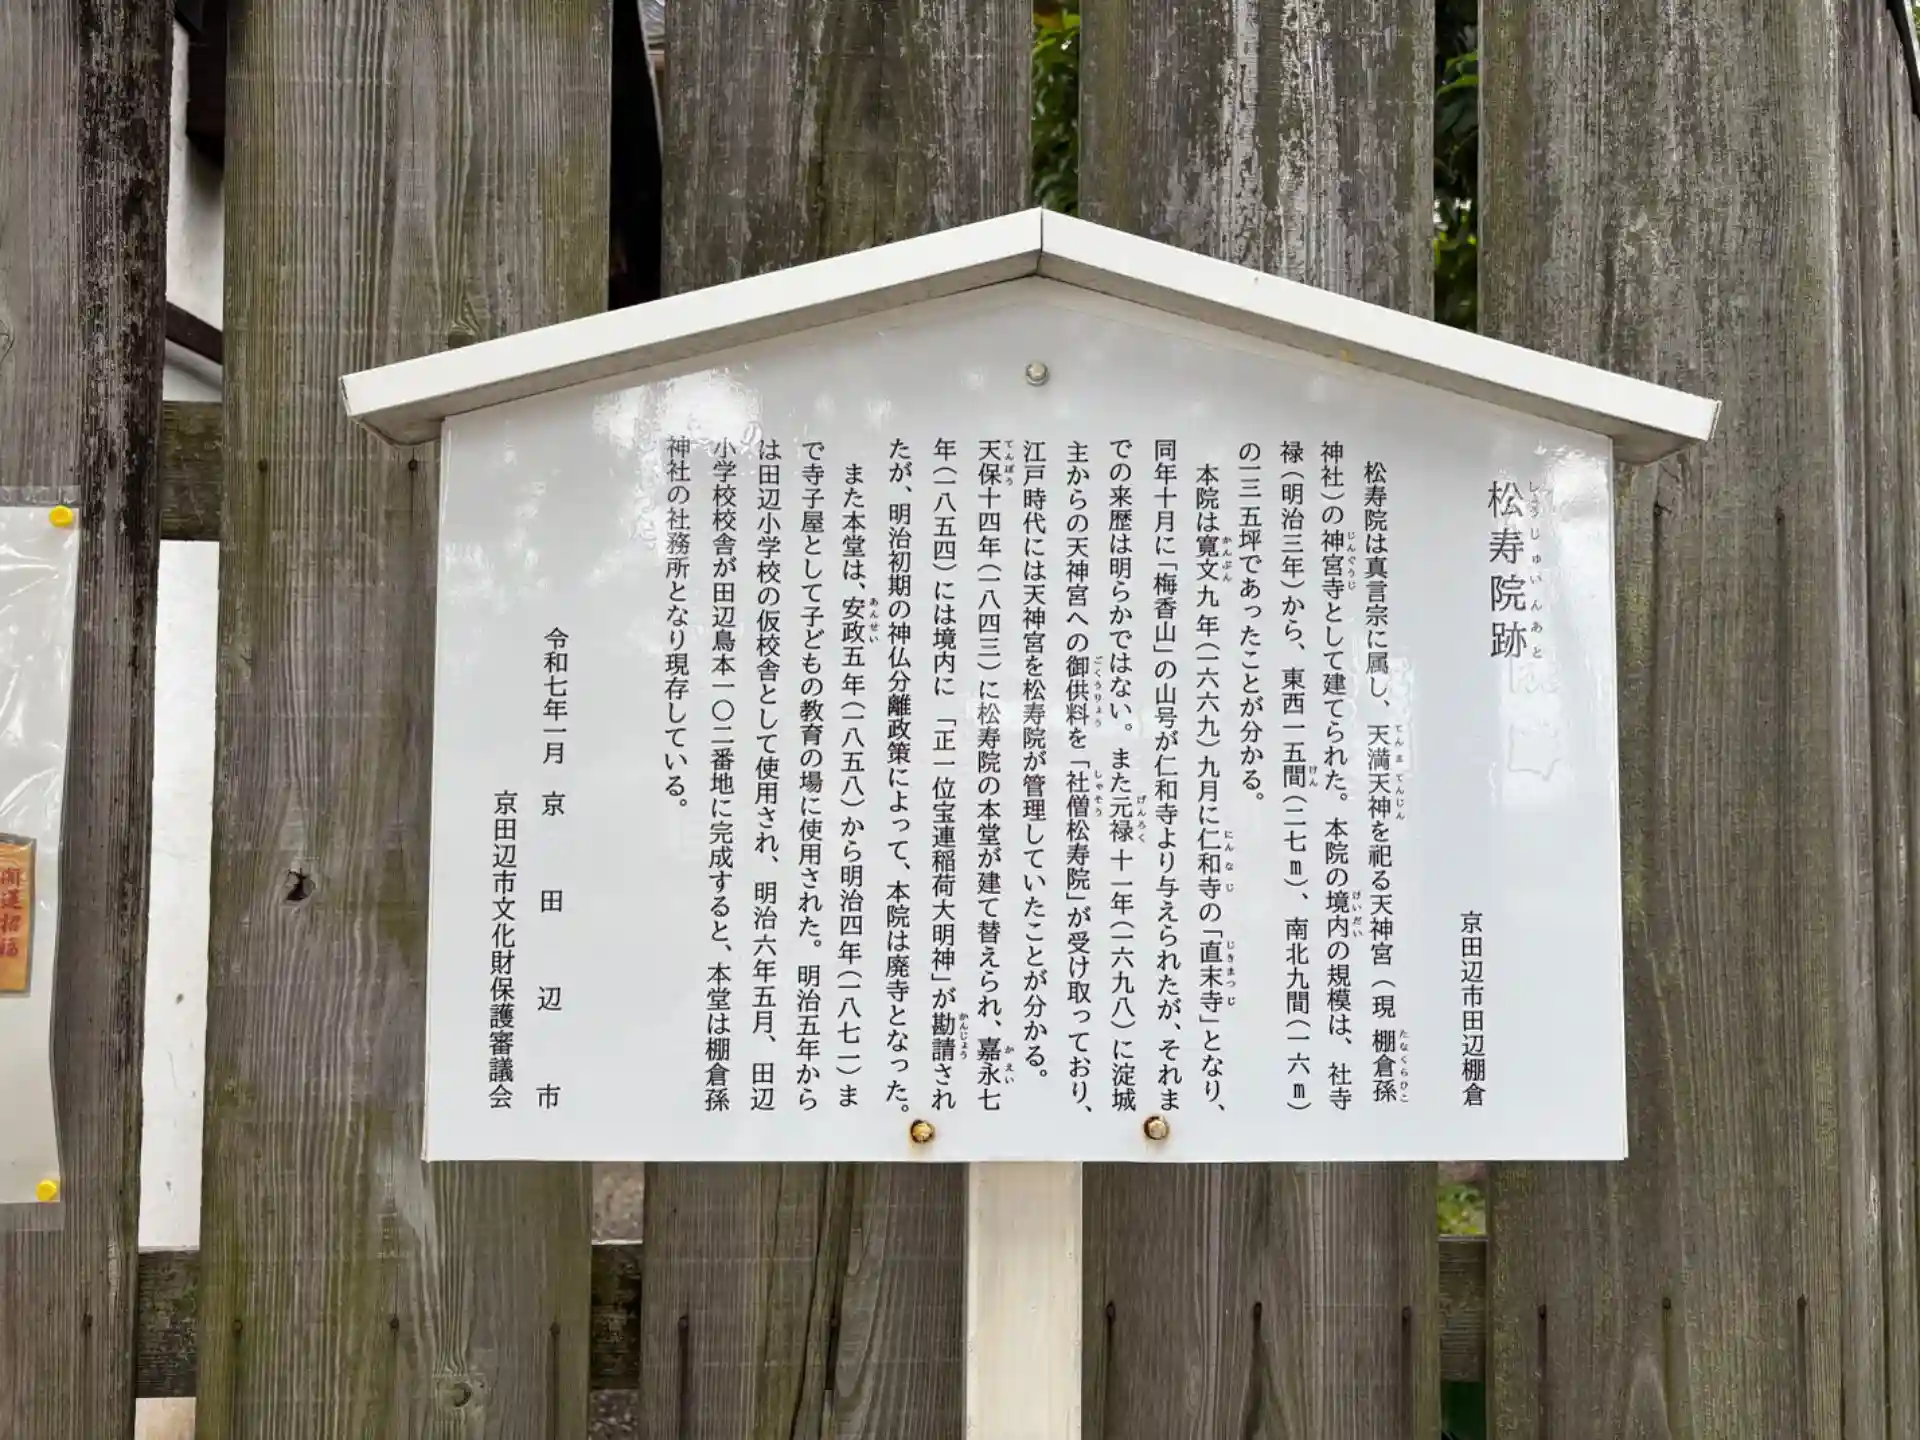 松寿院跡
しょうじゅいんあと
京田辺市田辺棚倉
松寿院は真言宗に属し、天満天神を祀る天神宮（現 棚倉孫
てんまてんじん
たなくらひこ
神社）の神宮寺として建てられた。本院の境内の規模は、社寺
じんぐうじ
けいだい
禄（明治三年）から、東西一五間（二七m）、南北九間（一六m）
けん
の一三五坪であったことが分かる。
本院は寛文九年（一六六九）九月に仁和寺の「直末寺」となり、
かんぶん
にんなじ
じきまつじ
同年十月に「梅香山」の山号が仁和寺より与えられたが、それま
での来歴は明らかではない。また元禄十一年（一六九八）に淀城
げんろく
主からの天神宮への御供料を「社僧松寿院」が受け取っており、
ごくうりょう
しゃそう
江戸時代には天神宮を松寿院が管理していたことが分かる。
天保十四年（一八四三）に松寿院の本堂が建て替えられ、嘉永七
てんぽう
かえい
年（一八五四）には境内に「正一位宝連稲荷大明神」が勘請され
かんじょう
たが、明治初期の神仏分離政策によって、本院は廃寺となった。
また本堂は、安政五年（一八五八）から明治四年（一八七一）ま
あんせい
で寺子屋として子どもの教育の場に使用された。明治五年から
は田辺小学校の仮校舎として使用され、明治六年五月、田辺
小学校校舎が田辺鳥本一〇二番地に完成すると、本堂は棚倉孫
神社の社務所となり現存している。
令和七年一月 京田辺市
京田辺市文化財保護審議会
開運招福